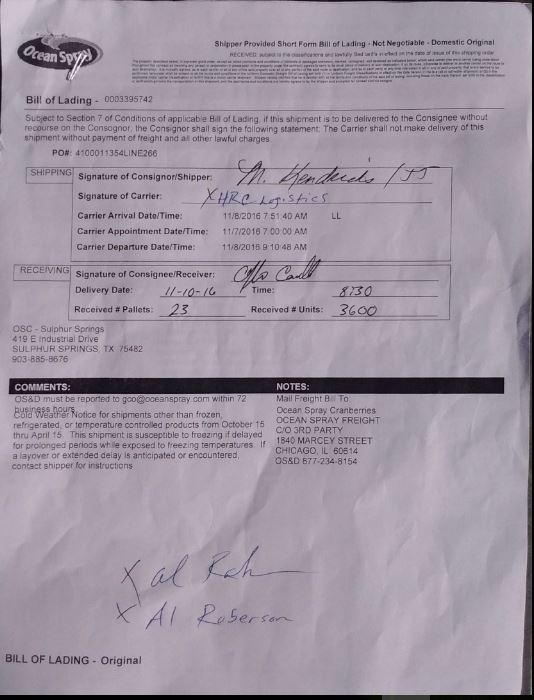 Ocean Spray
Shipper Provided Short Form Bill of Lading - Not Negotiable - Domestic Original
Bill of Lading - 0003395742
Subject to Section 7 of Conditions of applicable Bill of Lading, if this shipment is to be delivered to the Consignee without
recourse on the Consognor, the Consignor shall sign the following statement: The Carrier shall not make delivery of this
shipment without payment of freight and all other lawful charges.
PO#: 4100011354LINE266
SHIPPING
Signature of Consignor/Shipper: M. Hendricks / JJ
Signature of Carrier: X HRC Logistics
Carrier Arrival Date/Time: 11/8/2016 7:51:40 AM LL
Carrier Appointment Date/Time: 11/7/2016 7:00:00 AM
Carrier Departure Date/Time: 11/8/2016 9:10:48 AM
RECEIVING
Signature of Consignee/Receiver:
Delivery Date: 11-10-16 Time: 8:30
Received # Pallets: 23 Received # Units: 3600
OSC - Sulphur Springs
419 E Industrial Drive
SULPHUR SPRINGS, TX 75482
903-885-8676
COMMENTS:
OS&D must be reported to goo@oceanspray.com within 72
business hours.
Cold Weather Notice for shipments other than frozen,
refrigerated, or temperature controlled products from October 15
thru April 15. This shipment is susceptible to freezing if delayed
for prolonged periods while exposed to freezing temperatures. If
a layover or extended delay is anticipated or encountered,
contact shipper for instructions
NOTES:
Mail Freight Bill To:
Ocean Spray Cranberries
OCEAN SPRAY FREIGHT
C/O 3RD PARTY
1840 MARCEY STREET
CHICAGO, IL 60614
OS&D 877-234-8154
X Al Rob
X Al Roberson
BILL OF LADING - Original